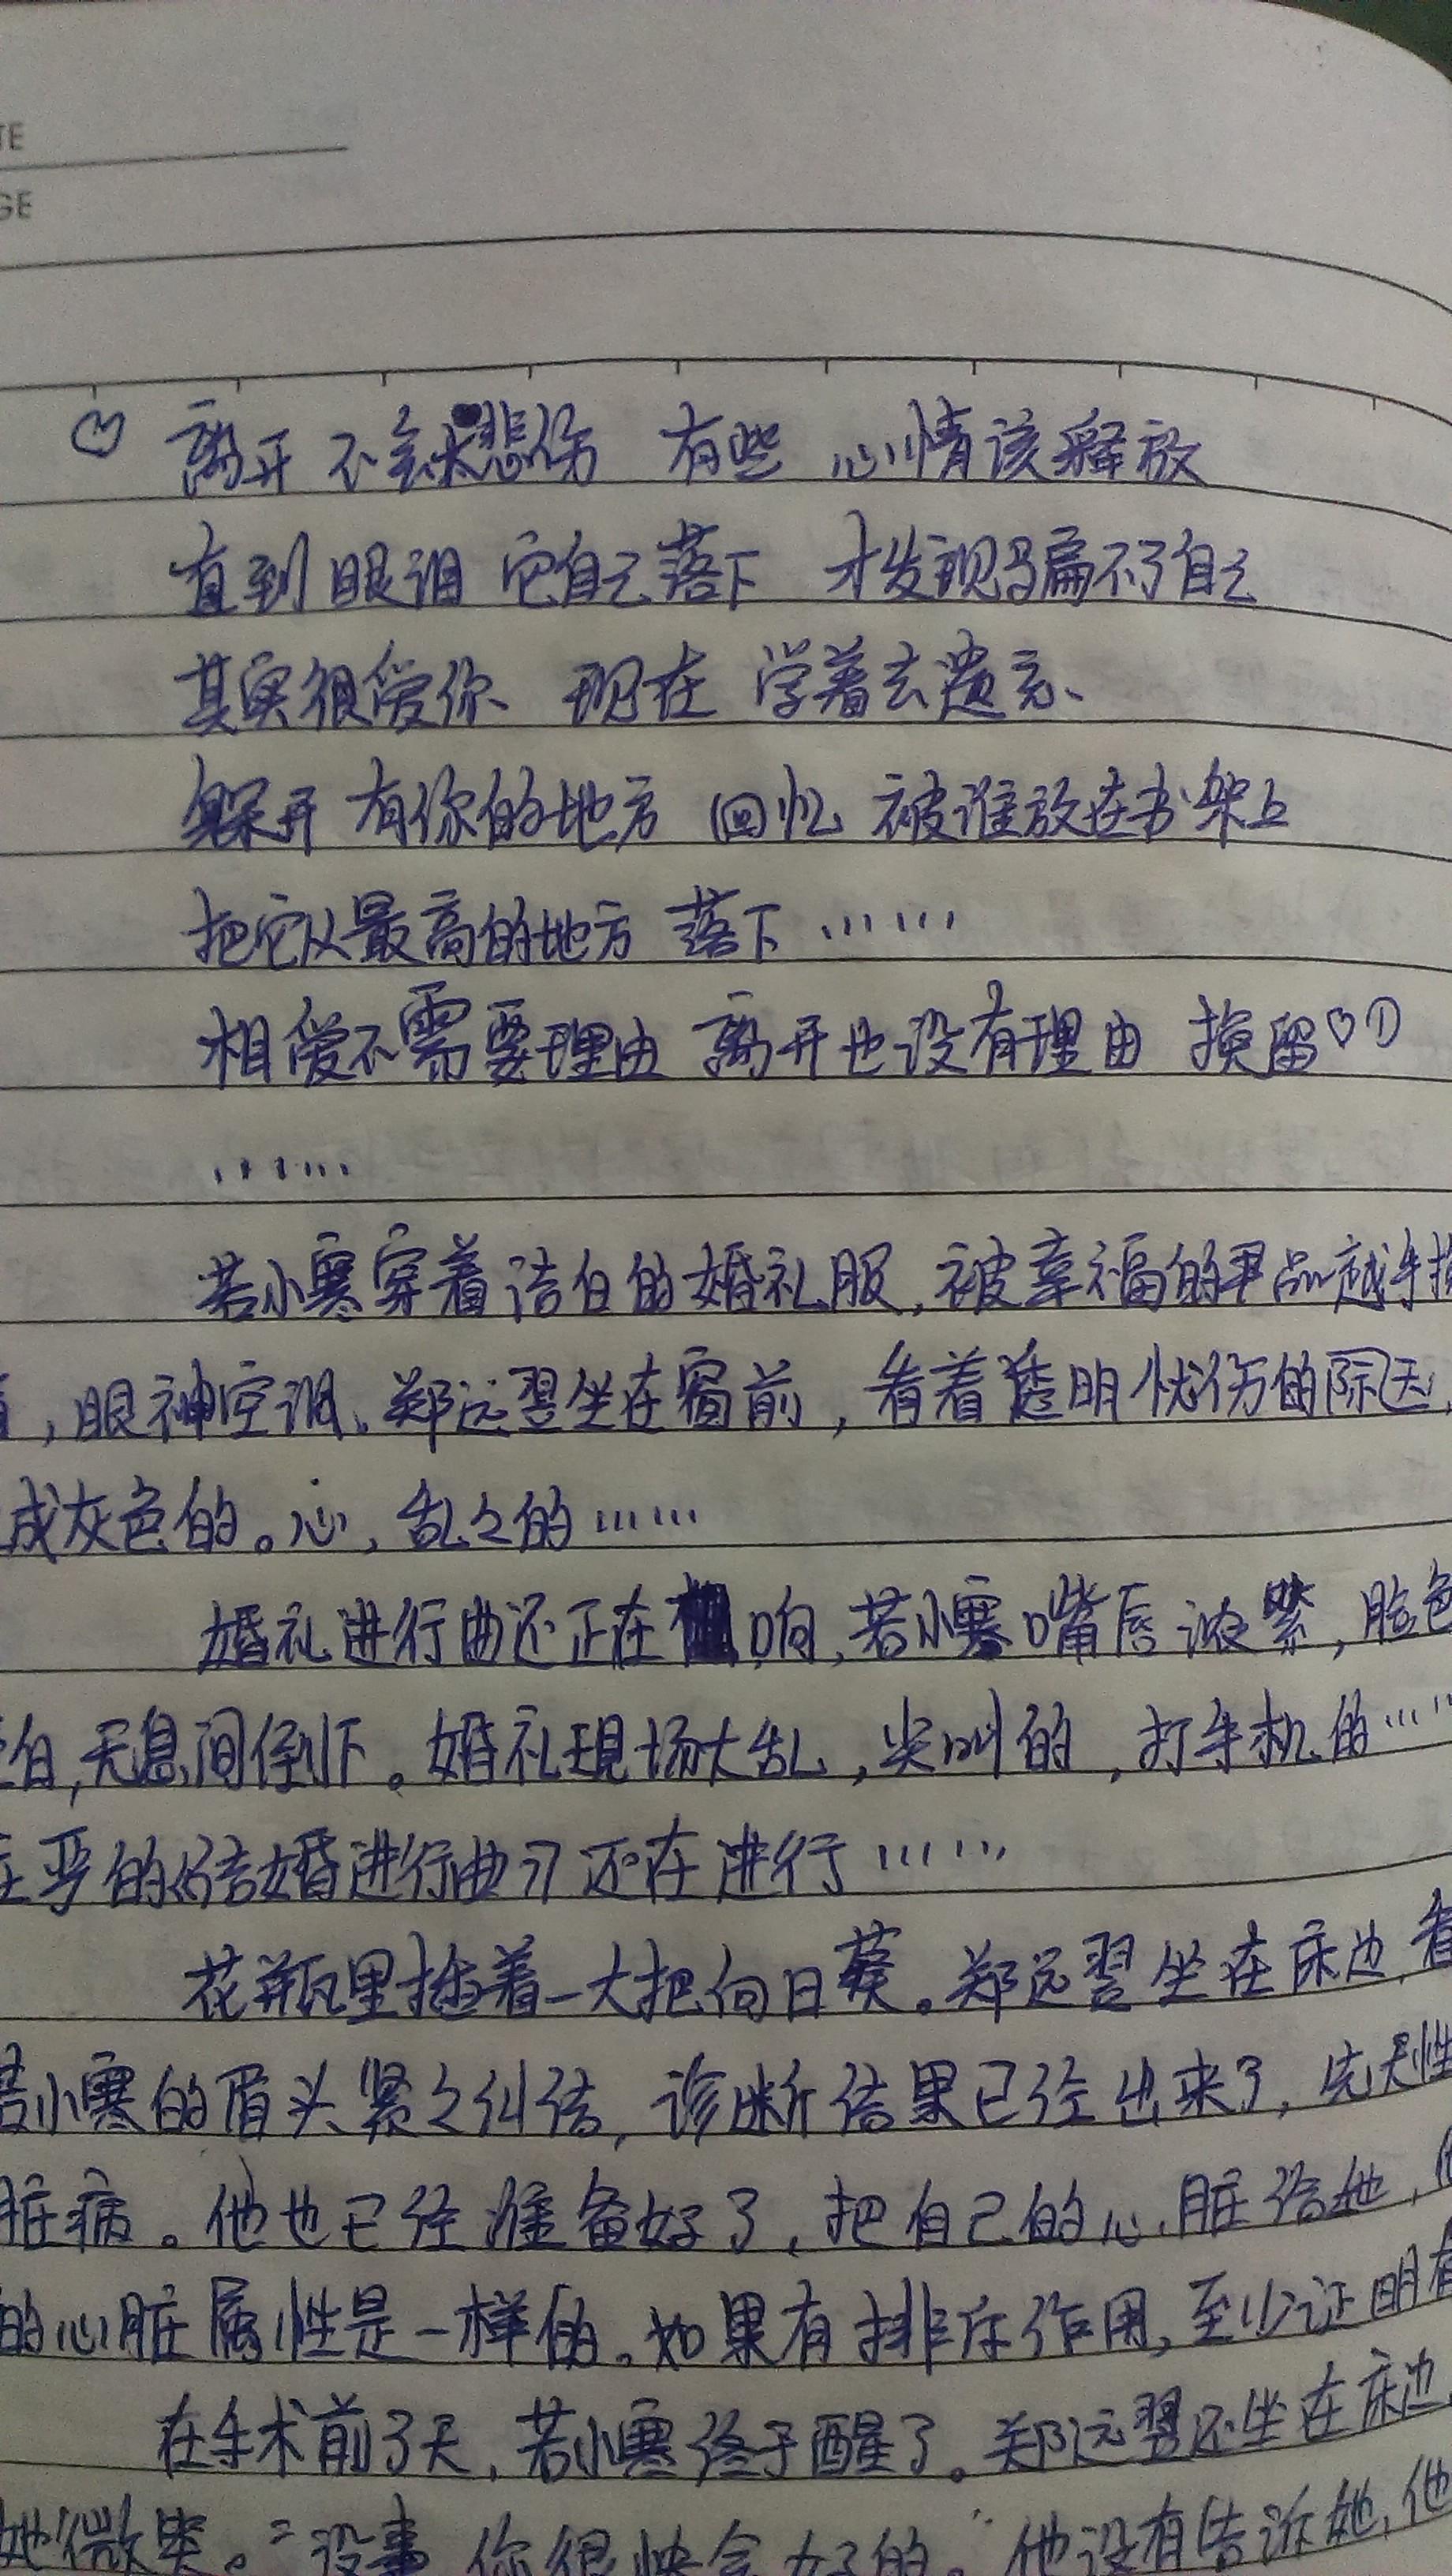 TE
GE
♡ 离开 不会太悲伤 有些 心情该释放
直到眼泪 它自己落下 才发现骗不了自己
其实很爱你、现在 学着去遗忘、
躲开 有你的地方 回忆 被谁放在书架上
把它从最高的地方 落下……
相爱不需要理由 离开也没有理由 挽留♡①
……
若小寒穿着洁白的婚礼服,被幸福的尹品越手
,眼神空洞、郑远翌坐在窗前,看着透明忧伤的际天,
成灰色的。心,乱々的……
婚礼进行曲还正在响,若小寒嘴唇浓紫,脸色
白,无息间倒下。婚礼现场大乱,尖叫的,打手机的……
严的《结婚进行曲》还在进行……
花瓶里插着一大把向日葵。郑远翌坐在床边,看
若小寒的眉头紧々纠结,诊断结果已经出来了,先天性
脏病。他也已经准备好了,把自己的心脏给她,
的心脏属性是一样的。如果有排斥作用,至少证明有
在手术前3天,若小寒终于醒了。郑远翌还坐在床边
她微笑。“没事 你很快会好的。”他没有告诉她,他